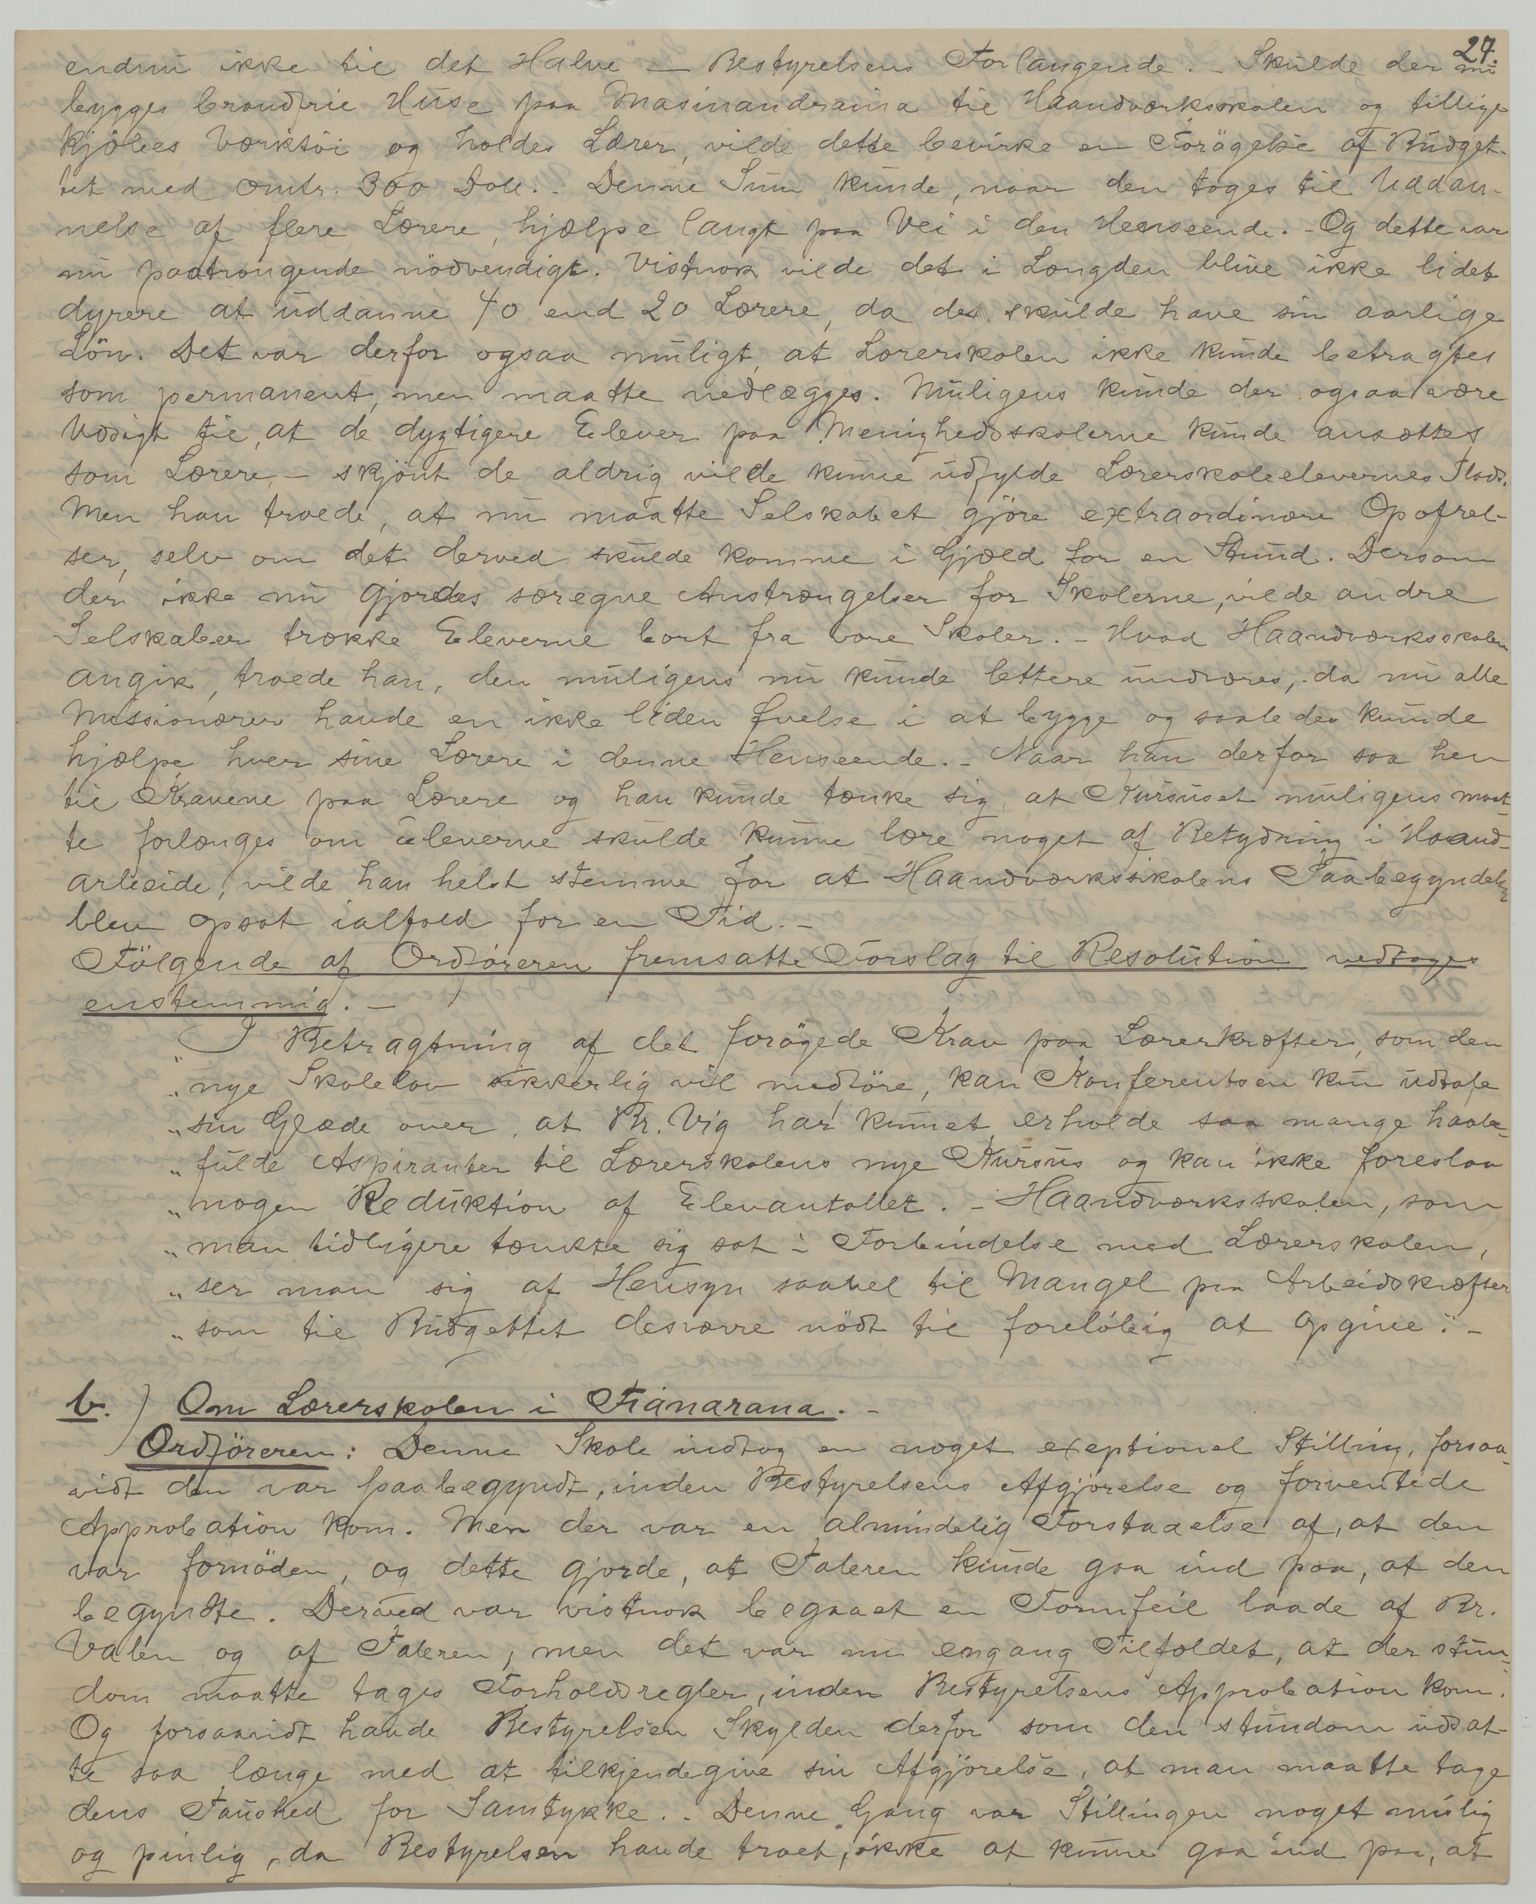 27.
endnu ikke til det Halve — Bestyrelsens Forlangende. – Skulde der nu
bygges brandfrie Huse paa Masinandraina til Haandværksskolen og tillige
kjöbes Værktöi og holdes Lærer, vilde dette bevirke en Forögelse af Budget-
tet med omtr. 300 Doll.. Denne Sum kunde, naar den toges til Uddan-
nelse af flere Lærere, hjælpe langt paa Vei i den Henseende. – Og dette var
nu paatrængende nödvendigt. Vistnok vilde det i Længden blive ikke lidet
dyrere at uddanne 40 end 20 Lærere, da de skulde have sin aarlige
Lön. Det var derfor ogsaa muligt, at Lærerskolen ikke kunde betragtes
som permanent, men maatte nedlægges. Muligens kunde der ogsaa være
Udsigt til, at de dygtigere Elever paa Menighedsskolerne kunde ansættes
som Lærere, – skjönt de aldrig vilde kunne udfylde Lærerskoleelevernes Plads.
Men han troede, at nu maatte Selskabet gjöre extraordinære Opofrel-
ser, selv om det derved skulde komme i Gjæld for en Stund. Dersom
der ikke nu gjordes særegne Anstrængelser for Skolerne, vilde andre
Selskaber trække Eleverne bort fra vore Skoler. – Hvad Haandværksskolen
angik, troede han, den muligens nu kunde lettere undværes, da nu alle
Missionærer havde en ikke liden Övelse i at bygge og saaledes kunde
hjælpe hver sine Lærere i denne Henseende. – Naar han derfor saa hen
til Kravene paa Lærere og han kunde tænke sig, at Kursuset muligens maat-
te forlænges om Eleverne skulde kunne lære noget af Betydning i Haand-
arbeide, vilde han helst stemme for at Haandværksskolens Paabegyndelse
blev opsat ialfald for en Tid. –
Fölgende af Ordföreren fremsatte Forslag til Resolution vedtoges
enstemmig. –
I Betragtning af det forögede Krav paa Lærerkræfter, som den
„ nye Skolelov sikkerlig vil medföre, kan Konferentsen kun udtale
„ sin Glæde over, at Br. Vig har kunnet erholde saa mange haabe-
„ fulde Aspiranter til Lærerskolens nye Kursus og kan ikke foreslaa
„ nogen Reduktion af Elevantallet. – Haandværksskolen, som
„ man tidligere tænkte sig sat i Forbindelse med Lærerskolen,
„ ser man sig af Hensyn saavel til Mangel paa Arbeidskræfter
„ som til Budgettet desværre nödt til forelöbig at opgive." –
b.) Om Lærerskolen i Fianarana. –
Ordföreren: Denne Skole indtog en noget exeptionel Stilling, forsaa-
vidt den var paabegyndt, inden Bestyrelsens Afgjörelse og forventede
Approbation kom. Men der var en almindelig Forstaaelse af, at den
var fornöden, og dette gjorde, at Taleren kunde gaa ind paa, at den
begyndte. Derved var vistnok begaaet en Formfeil baade af Br.
Valen og af Taleren, men det var nu engang Tilfældet, at der stun-
dom maatte tages Forholdsregler, inden Bestyrelsens Approbation kom.
Og forsaavidt havde Bestyrelsen Skylden derfor som den stundom udsat-
te saa længe med at tilkjendegive sin Afgjörelse, at man maatte tage
dens Taushed for Samtykke. – Denne Gang var Stillingen noget mislig
og pinlig, da Bestyrelsen havde troet, ikke at kunne gaa ind paa, at